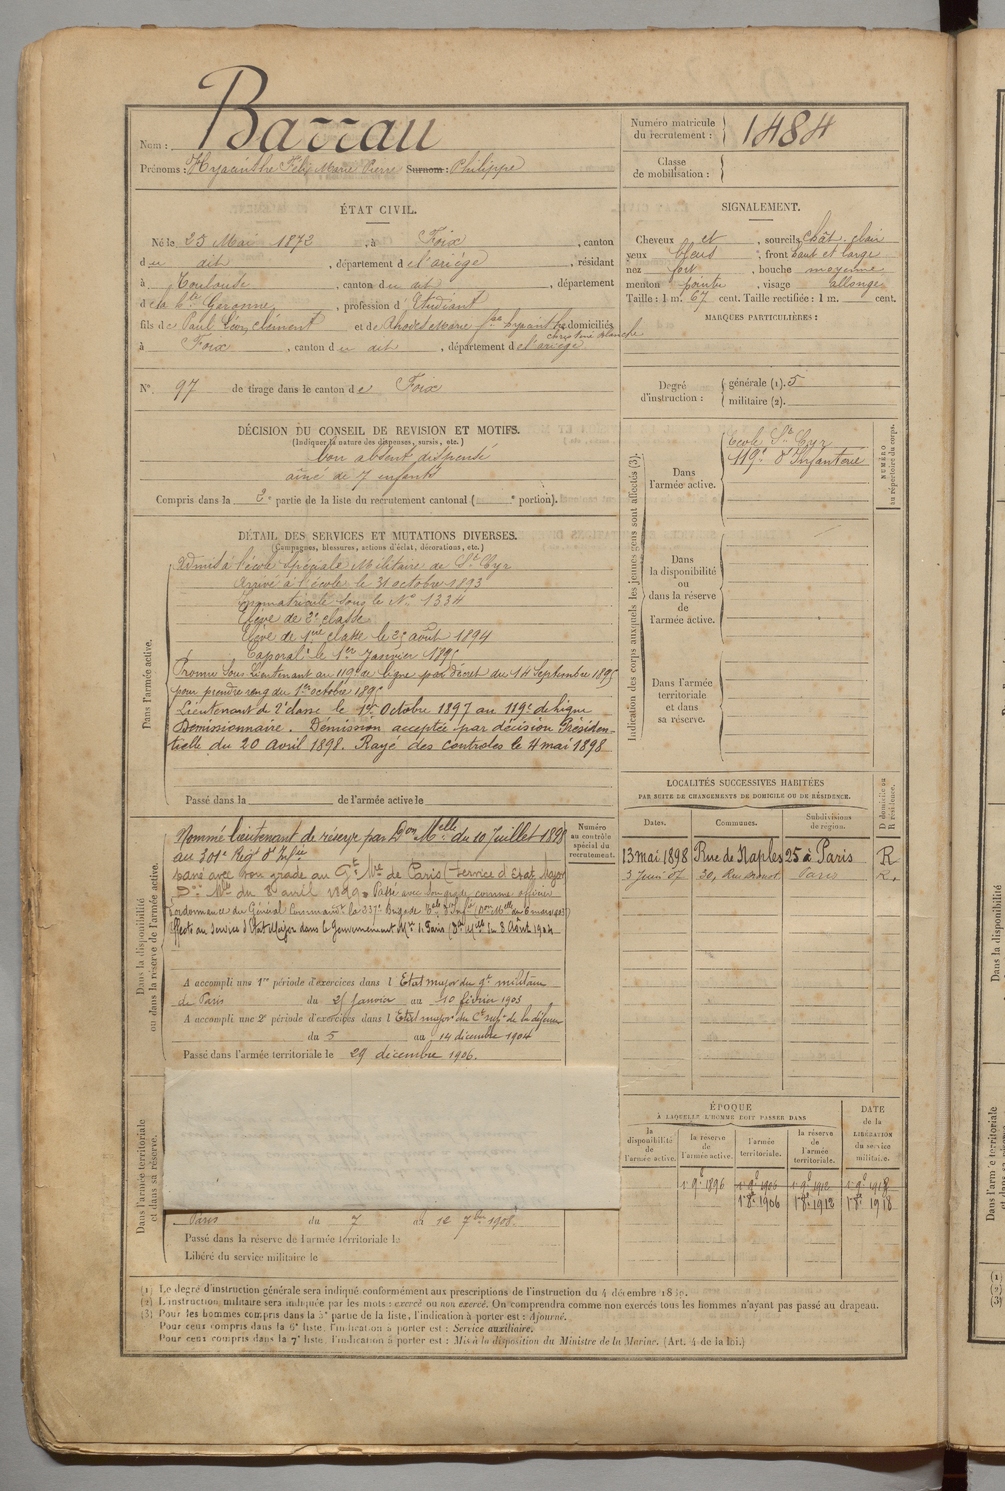 Nom : Barrau
Numéro matricule du recrutement : 1484
Prénoms : Hyacinthe Félix Marie Pierre Surnom : Philippe
Classe de mobilisation :
ÉTAT CIVIL.
Né le 25 Mai 1872, à Foix, canton
du dit, département de l'ariège, résidant
à Toulouse, canton du dit, département
de la Hte Garonne, profession d'Etudiant
fils de Paul Léon Clément et de domiciliés
à Foix, canton du dit, département de l'ariège
No 97 de tirage dans le canton de Foix
SIGNALEMENT.
Cheveux et, sourcils chât. clair
yeux bleus, front haut et large
nez fort, bouche moyenne
menton pointu, visage allongé
Taille : 1 m. 67 cent. Taille rectifiée : 1 m. cent.
MARQUES PARTICULIÈRES :
Degré d'instruction : générale (1). 5
militaire (2).
DÉCISION DU CONSEIL DE REVISION ET MOTIFS.
(Indiquer la nature des dispenses, sursis, etc.)
bon absent dispensé
aîné de 7 enfants
Compris dans la 2e partie de la liste du recrutement cantonal ( e portion).
DÉTAIL DES SERVICES ET MUTATIONS DIVERSES.
(Campagnes, blessures, actions d'éclat, décorations, etc.)
Dans l'armée active.
Admis à l'école Spéciale Militaire de St Cyr
Arrivé à l'école le 31 octobre 1893
Immatriculé sous le No 1334
Elève de 2e classe
Elève de 1ère classe le août 1894
Caporal le 1er Janvier 1895
Promu Sous Lieutenant au 119e de ligne par décret du 14 Septembre 1895
pour prendre rang du 1er octobre 1895
Lieutenant de 2e classe le 1er Octobre 1897 au 119e de ligne
Démissionnaire. Démission acceptée par décision Présiden-
tielle du 20 avril 1898. Rayé des contrôles le 4 mai 1898
Passé dans la de l'armée active le
Indication des corps auxquels les jeunes gens sont affectés (3).
Dans l'armée active.
Ecole St Cyr
119e d'Infanterie
NUMÉRO au répertoire du corps.
Dans la disponibilité ou dans la réserve de l'armée active.
Dans l'armée territoriale et dans sa réserve.
LOCALITÉS SUCCESSIVES HABITÉES
PAR SUITE DE CHANGEMENTS DE DOMICILE OU DE RÉSIDENCE.
D domicile ou R résidence.
Dates. Communes. Subdivisions de région.
13 mai 1898 Rue de Naples 25 à Paris R
3 Juin 07 30, Rue Paris R.
Dans la disponibilité ou dans la réserve de l'armée active.
Numéro au contrôle spécial du recrutement.
Nommé Lieutenant de réserve par Don Melle du 10 Juillet 1898
au 301e Régt d'Infie
Passé avec son grade au Gt Mre de Paris (Service d'Etat Major)
Don Mle du 8 avril 1899. Passé avec son grade comme officier
d'ordonnance du Général Command. la 337e Brigade
Affecté au Service d'Etat Major dans le Gouvernement Mre de Paris (Don Melle du 8 Août 1904
A accompli une 1re période d'exercices dans l'Etat major du gt militaire
de Paris du 25 Janvier au 10 février 1903
A accompli une 2e période d'exercices dans l'Etat major du de la défense
du 5 au 14 décembre 1904
Passé dans l'armée territoriale le 29 décembre 1906.
Dans l'armée territoriale et dans sa réserve.
Paris du 7 au 12 7bre 1908
Passé dans la réserve de l'armée territoriale le
Libéré du service militaire le
ÉPOQUE
À LAQUELLE L'HOMME DOIT PASSER DANS
DATE de la LIBÉRATION du service militaire.
la disponibilité de l'armée active. la réserve de l'armée active. l'armée territoriale. la réserve de l'armée territoriale.
1er 9e 1896 1er 9e 1906 1er 9e 1912 1er 9e 1918
1er 8e 1906 1er 8e 1912 1er 8e 1918
(1) Le degré d'instruction générale sera indiqué conformément aux prescriptions de l'instruction du 4 décembre 1889.
(2) L'instruction militaire sera indiquée par les mots : exercé ou non exercé. On comprendra comme non exercés tous les hommes n'ayant pas passé au drapeau.
(3) Pour les hommes compris dans la 5e partie de la liste, l'indication à porter est : Ajourné.
Pour ceux compris dans la 6e liste, l'indication à porter est : Service auxiliaire.
Pour ceux compris dans la 7e liste, l'indication à porter est : Mis à la disposition du Ministre de la Marine. (Art. 4 de la loi.)
Dans la disponibilité
Dans l'armée territoriale
(1)
(2)
(3)